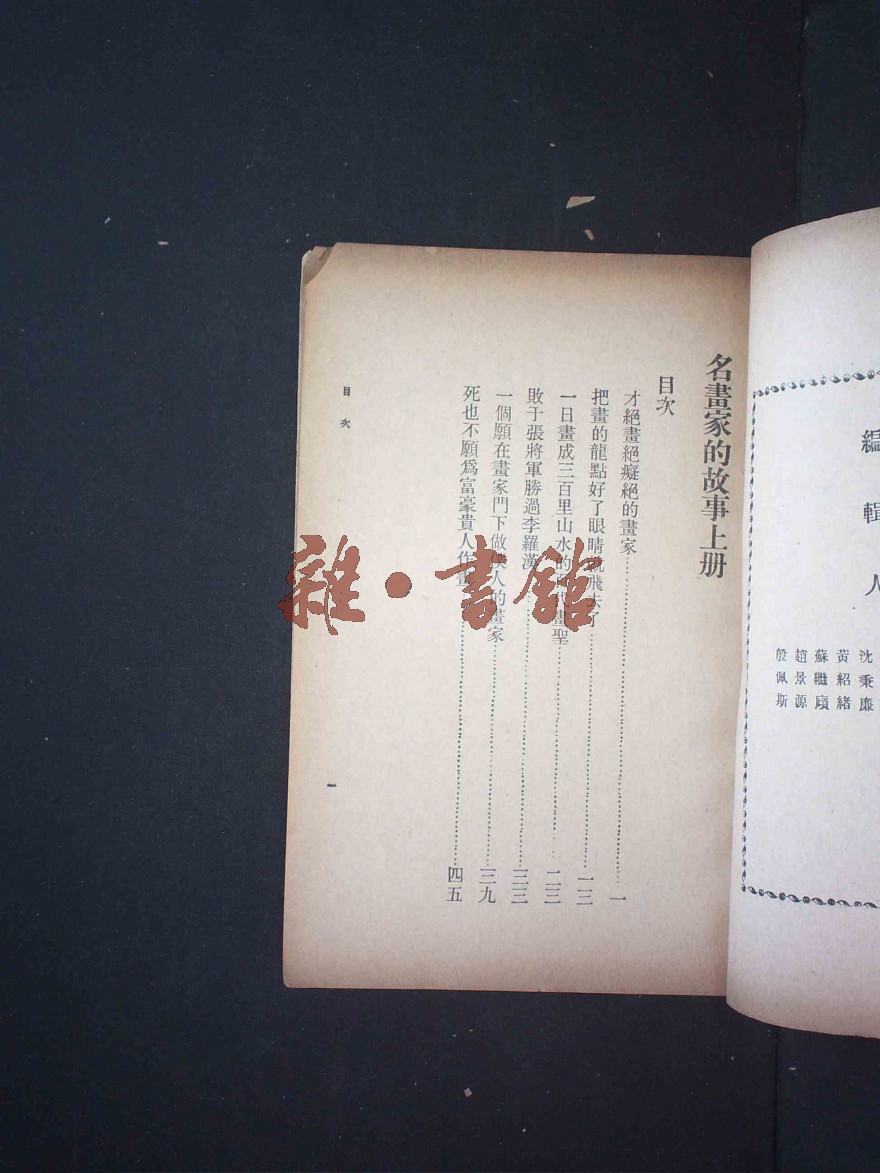 編輯人
沈秉廉
黃紹緒
蘇繼廎
趙景源
殷佩斯
名畫家的故事上册
目次
才絕畫絕癡絕的畫家……一
把畫的龍點好了眼睛就飛去了……一三
一日畫成三百里山水的一代畫聖……二三
敗于張將軍勝過李羅漢……三三
一個願在畫家門下做僕人的畫家……三九
死也不願爲富豪貴人作畫……四五
目次
一
雜·書館